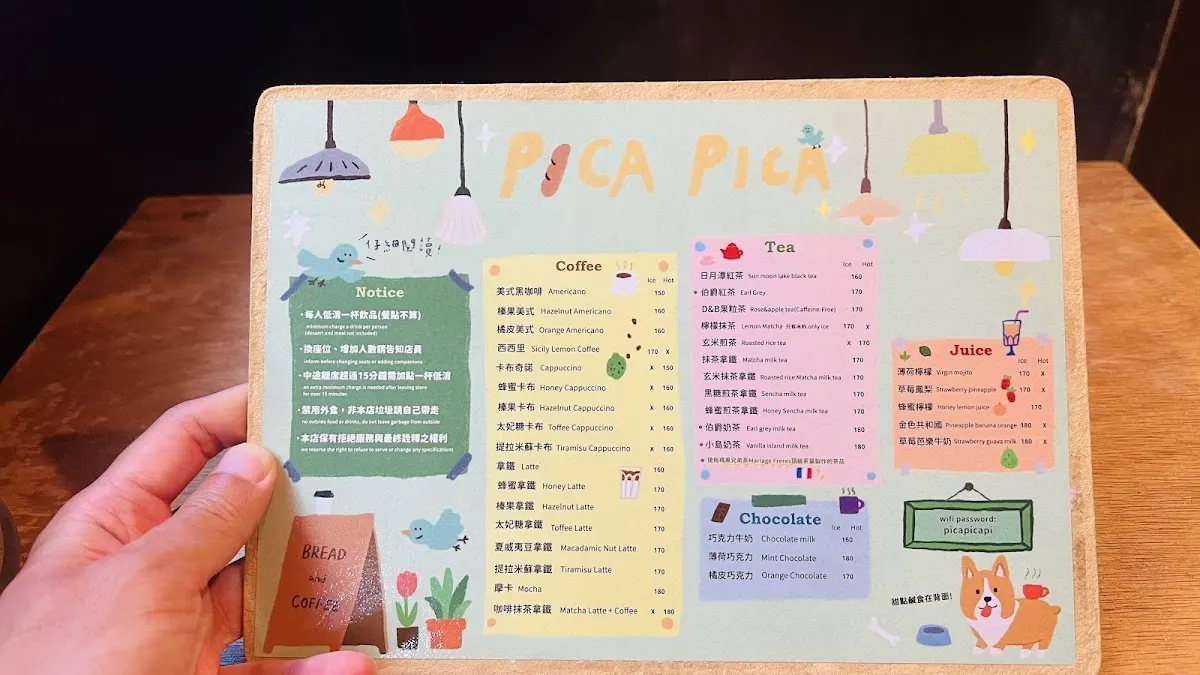 PICA PICA
仔細閱讀!
Notice
·每人低消一杯飲品(餐點不算)
minimum charge a drink per person
(dessert and meal not included)
·換座位、增加人數請告知店員
inform before changing seats or adding companions
·中途離席超過15分鐘需加點一杯低消
an extra minimum charge is needed after leaving store
for over 15 minutes
·禁用外食，非本店垃圾請自己帶走
no outside food or drinks, do not leave garbage from outside
·本店保有拒絕服務與最終詮釋之權利
we reserve the right to refuse to serve or change any specifications
BREAD
and
COFFEE
Coffee
Ice Hot
美式黑咖啡 Americano 150
榛果美式 Hazelnut Americano 160
橘皮美式 Orange Americano 160
西西里 Sicily Lemon Coffee 170 X
卡布奇諾 Cappuccino X 150
蜂蜜卡布 Honey Cappuccino X 160
榛果卡布 Hazelnut Cappuccino X 160
太妃糖卡布 Toffee Cappuccino X 160
提拉米蘇卡布 Tiramisu Cappuccino X 160
拿鐵 Latte 160
蜂蜜拿鐵 Honey Latte 170
榛果拿鐵 Hazelnut Latte 170
太妃糖拿鐵 Toffee Latte 170
夏威夷豆拿鐵 Macadamic Nut Latte 170
提拉米蘇拿鐵 Tiramisu Latte 170
摩卡 Mocha 180
咖啡抹茶拿鐵 Matcha Latte + Coffee X 180
Tea
Ice Hot
日月潭紅茶 Sun moon lake black tea 160
•伯爵紅茶 Earl Grey 170
D&B果粒茶 Rose&apple tea(Caffeine-Free) 170
檸檬抹茶 Lemon Matcha 只有冰的 only ice 170 X
玄米煎茶 Roasted rice tea X 170
抹茶拿鐵 Matcha milk tea 170
玄米抹茶拿鐵 Roasted rice Matcha milk tea 180
黑糖煎茶拿鐵 Sencha milk tea 170
蜂蜜煎茶拿鐵 Honey Sencha milk tea 170
•伯爵奶茶 Earl grey milk tea 180
•小島奶茶 Vanilla island milk tea 180
•使用瑪黑兄弟茶Mariage Freres頂級茶葉製作的茶品
Chocolate
Ice Hot
巧克力牛奶 Chocolate milk 160
薄荷巧克力 Mint Chocolate 180
橘皮巧克力 Orange Chocolate 170
Juice
Ice Hot
薄荷檸檬 Virgin mojito 170 X
草莓鳳梨 Strawberry pineapple 170 X
蜂蜜檸檬 Honey lemon juice 170
金色共和國 Pineapple banana orange 180 X
草莓芭樂牛奶 Strawberry guava milk 180 X
wifi password:
picapicapi
甜點鹹食在背面!